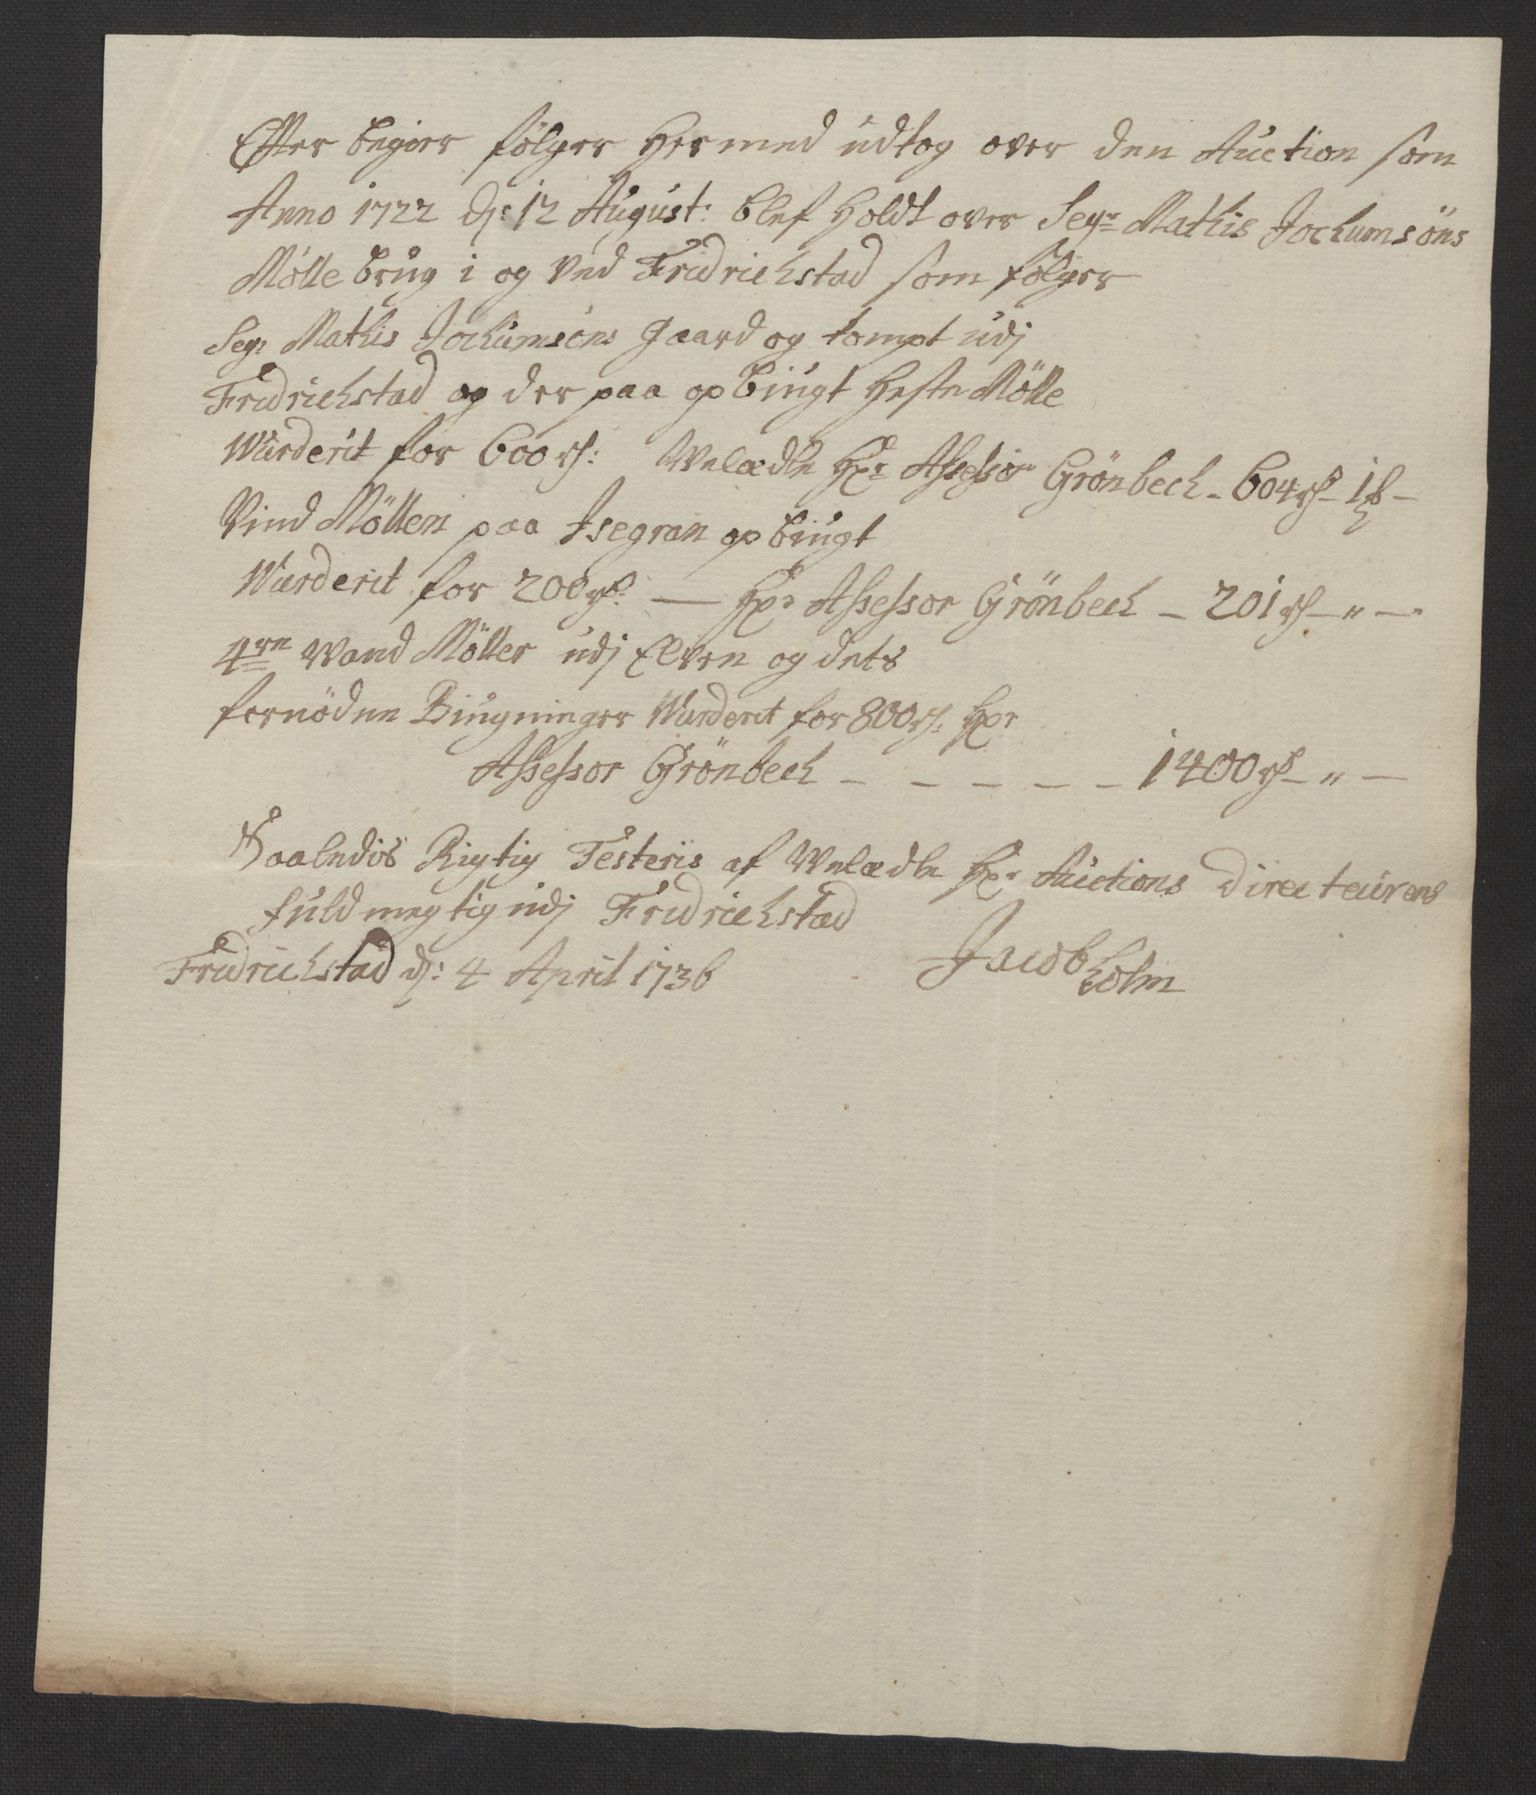 Efter begier følger Hermed udtog over den Auction som
Anno 1722 d: 12 August: blef Holdt over Segr Mathis Jochumsöns
Mölle brug i og Ved Fridrichstad som følger
Segr Mathis Jochumsöns Gaard og tompt udj
Fridrichstad og der paa op bÿugt Heste Mölle
Wurderit for 600 rd: Velædle Hr Assessor Grönbech - 604 rd - 1 ß -
Vind Möllen paa Isegran op biugt
Wurderit for 200 rd: — Hr Assessor Grönbech - 201 rd - " -
4re Vand Möller udj Elven og dets
fornödne Biugninger Wurderit for 800 rd: Hr
Assessor Grönbech - - - - - 1400 rd - " -
Saaledis Rigtig Testeris af Velædle Hr Auctions Directeurens
fuldmegtig udj Fridrichstad
Fridrichstad d: 4 April 1736 Jacob Holm